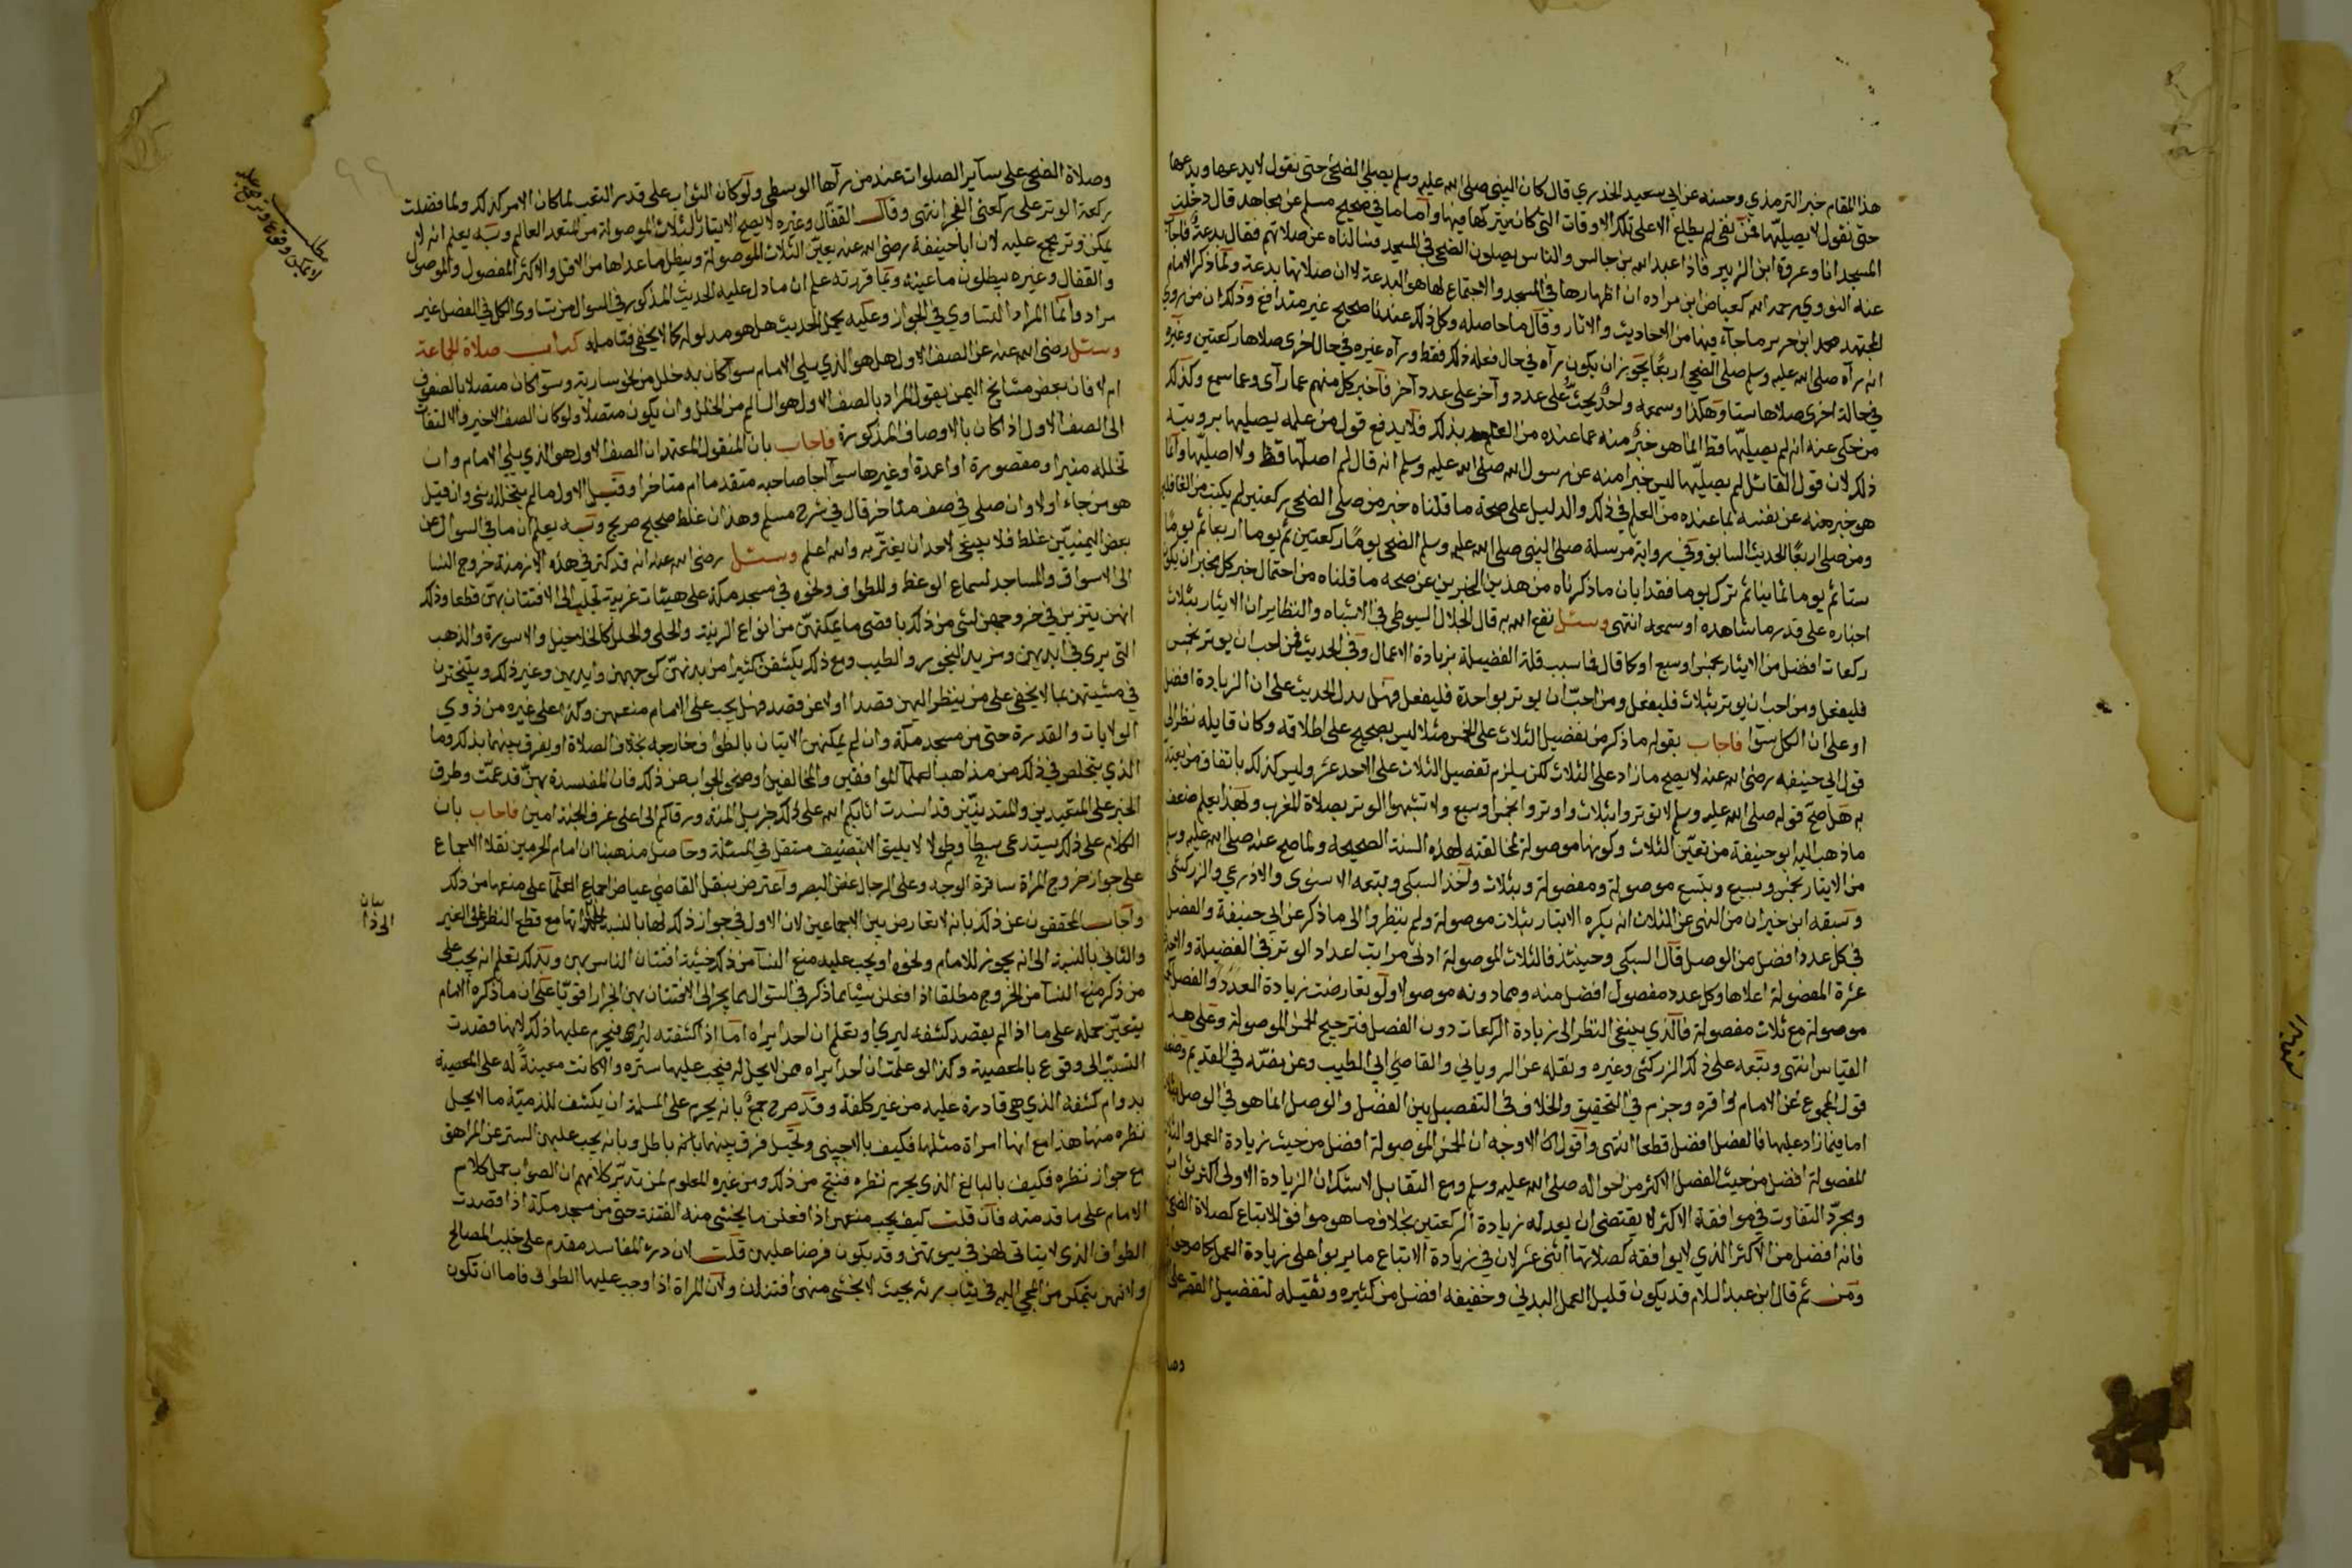 هذا المقام خبر الترمذي وحسنه عن ابي سعيد الخدري قال كان النبي صلى الله عليه وسلم يصلي الضحى حتى نقول لا يدعها ويدعها
حتى نقول لا يصليها فمن نفى لم يطلع الا على تلك الاوقات التي كان يتركها فيها واما ما في صحيح مسلم عن مجاهد قال دخلت
المسجد انا وعروة ابن الزبير فاذا عبد الله بن جالس والناس يصلون الضحى في المسجد فسالناه عن صلاتهم فقال بدعة فاجاب
عنه النووي رحمه الله كعياض ابن مراده ان اظهارها في المسجد والاجتماع لها هو البدعة لا ان صلاتها بدعة ولما ذكر الامام
المجتهد محمد ابن جرير ما جآء فيها من الاحاديث والاثار وقال ما حاصله وكل ذلك عندنا صحيح غير متدافع وذلك ان من روي
انه رآه صلى الله عليه وسلم صلى الضحى اربعًا يجوز ان يكون رآه في حال فعله ذلك فقط ورآه غيره في حال اخرى صلاها ركعتين وغيره
في حالة اخرى صلاها ستا وهكذا وسمعه واحد يحث على عدد وآخر على عدد آخر فاخبر كل منهم عما رآى وعما سمع وكذلك
من حكى عنه انه لم يصليها قط انما هو خبر منه عما عنده من العلم بذلك فلا يدفع قول من علمه يصليها برويته
ذلك لان قول القائل لم يصليها ليس خبرا منه عن رسول الله صلى الله عليه وسلم انه قال لم اصلها قط ولا اصليها وانما
هو خبر منه عن نفسه بما عنده من العلم في ذلك والدليل على صحة ما قلناه خبر من صلى الضحى ركعتين لم يكتب من الغافلين
ومن صلى اربعًا الحديث السابق وفي رواية مرسلة صلى النبي صلى الله عليه وسلم الضحى يومًا ركعتين ثم يوما اربعا ثم يومًا
ستا ثم يوما ثمانيا ثم ترك يوما فقد ابان ما ذكرناه من هذين الخبرين عن صحة ما قلناه من احتمال خبر كل مخبر ان يكون
اخباره على قدر ما شاهده او سمعه انتهى وسئل نفع الله به قال الجلال السيوطي في الاشباه والنظاير ان الايتار بثلاث
ركعات افضل من الايتار بخمس او سبع او كما قال فما سبب قلة الفضيلة بزيادة الاعمال وفي الحديث فمن احب ان يوتر بخمس
فليفعل ومن احب ان يوتر بثلاث فليفعل ومن احبّ ان يوتر بواحدة فليفعل وهل يدل الحديث على ان الزيادة افضل
او على ان الكل سوا فاجاب بقوله ما ذكر من تفضيل الثلاث على الخمس مثلا ليس بصحيح على اطلاقه وكان قايله نظر الى
قول ابي حنيفه رضي الله عنه لا يصح ما زاد على الثلاث لكن يلزم تفضيل الثلاث على الاحد عشر وليس كذلك باتفاق من يعتد
به هل صح قوله صلى الله عليه وسلم لا توتروا بثلاث واوتروا بخمس او سبع ولا تشبهوا الوتر بصلاة المغرب وبهذا يعلم ضعف
ما ذهب اليه ابو حنيفة من تعيّن الثلاث وكونها موصولة لمخالفته لهذه السنة الصحيحة ولما صح عنه صلى الله عليه وسلم
من الايتار بخمس وبسبع وبتسع موصولة ومفصولة وبثلاث واخذ السبكي وتبعه الاسنوي والاذرعي والزركشي
وسبقه ابن خيران من النهي عن الثلاث انه يكره الايتار بثلاث موصولة ولم ينظروا الى ما ذكر عن ابي حنيفة والفصل
في كل عدد افضل من الوصل قال السبكي وحينئذ فالثلاث الموصولة ادنى مراتب اعداد الوتر في الفضيلة والاحد
عشرة المفصولة اعلاها وكل عدد مفصول افضل منه ومما دونه موصولا ولو تعارضت زيادة العدد والفصل
موصولة مع ثلاث مفصولة فالذي ينبغي النظر الى زيادة الركعات دون الفصل فترجيح الخمس الموصولة وعلى هذا
القياس انتهى وتبعه على ذلك الزركشي وغيره ونقله عن الروياني والقاضي ابي الطيب وعن نصّه في القديم
قول المجموع عن الامام واقره وجزم في التحقيق والخلاف في التفصيل بين الفصل والوصل انما هو في الوصل
اما فيما زاد عليها فالفصل افضل قطعا انتهى واقول كان الاوجه ان الخمس الموصولة افضل من حيث زيادة العمل
المفصولة افضل من حيث الفصل الاكثر من احواله صلى الله عليه وسلم ومع التقابل لا شك ان الزيادة الاولى اكثر ثواب
ومجرد التفاوت في موافقة الاكثر لا يقتضي ان يعدله زيادة الركعتين بخلاف ما هو موافق للاتباع كصلاة الضحى
فانه افضل من الاكثر الذي لا يوافقه كصلاتها اثنى عشر لان في زيادة الاتباع ما يربوا على زيادة العمل كما صرحوا
ومن ثم قال ابن عبد السلام قد يكون قليل العمل البدني وخفيفه افضل من كثيره وثقيله لتفضيل القصر على
وصلاة الضحى على سآير الصلوات عند من رآها الوسطى ولو كان الثواب على قدر التعب لما كان الامر كذلك ولما فضلت
ركعة الوتر على ركعتي الفجر انتهى وقال القفال وغيره لا يصح الايتار بالثلاث الموصولة من المتعمد العالم وبه يعلم انه لا
يمكن وترجيح عليه لان ابا حنيفة رضي الله عنه يعين الثلاث الموصولة ويبطل ما عداها من الاقل والاكثر المفصول والموصول
والقفال وغيره يبطلون ما عينه وبما قررته علم ان ما دل عليه الحديث المذكور في السوال من تساوي الكل في الفضل غير
مراد وانما المراد التساوي في الجواز وعليه يحمل الحديث هل هو مدلوله كما لا يخفى فتامله كتاب صلاة الجماعة
وسئل رضي الله عنه عن الصف الاول هل هو الذي يلي الامام سوآ كان به خلل من نحو سارية وسوآ كان متصلا بالصفوف
ام لا فان بعض مشايخ اليمن يقول المراد بالصف الاول هو السالم من الخلل وان يكون متصلا ولو كان الصف الاخير والالتفات
الى الصف الاول اذا كان بالاوصاف المذكورة فاجاب بان المنقول المعتمد ان الصف الاول هو الذي يلي الامام وان
تخلله منبر او مقصورة او اعمدة او غيرها سوآ اجا صاحبه متقدما ام متاخرا وقيل الاول ما لم يتخلله شي وان قيل
هو من جاء اولا وان صلى في صف متاخر قال في شرح مسلم وهذان غلط صحيح صريح وبه يعلم ان ما في السوال عن
بعض اليمنيّين غلط فلا ينبغي لاحد ان يغتر به والله اعلم وسئل رضي الله عنه انه قد كثر في هذه الازمنة خروج النسا
الى الاسواق والمساجد لسماع الوعظ وللطواف ونحوه في مسجد مكة على هيئات غريبة تجلب الى الافتتان بهن قطعا وذلك
انهن يتزين في خروجهن لشي من ذلك باقصى ما يمكنهن من انواع الزينة والحلي والحلل كالخلاخيل والاسورة والذهب
التي يرى في ايديهن ومزيد البخور والطيب ومع ذلك يكشفن كثيرا من بدنهن كوجههن وايديهن وغير ذلك ويتبخترن
في مشيتهن بما لا يخفى على من ينظر اليهن قصدا اولا عن قصد فهل يجب على الامام منعهن وكذا على غيره من ذوي
الولايات والقدرة حتى من مسجد مكة وان لم يمكنهن الاتيان بالطواف خارجه بخلاف الصلاة او يفرق بينهما بذلك وما
الذي يتخلص في ذلك من مذاهب العلمآ الموافقين والمخالفين اوضحوا الجواب عن ذلك فان المفسدة بهن قد عمت وطرق
الخير على المتعبدين والمتدينيّن قد انسدت اثابكم الله على ذلك جزيل المنة ورقاكم الى اعلى غرف الجنة امين فاجاب بان
الكلام على ذلك يستدعي بسطا وطولا لا يليق الا بتصنيف مستقل في المسئلة وحاصل مذهبنا ان امام الحرمين نقلا الاجماع
على جواز خروج المراة سافرة الوجه وعلى الرجال غض البصر واعترض بنقل القاضي عياض اجماع العلمآ على منعها من ذلك
واجاب المحققون عن ذلك بانه لا تعارض بين الاجماعين لان الاول في جواز ذلك لها بالنسبة مع قطع النظر عن الغير
والثاني بالنسبة الى انه يجوز للامام ونحوه او يجب عليه منع النسآ من ذلك خشية افتتان الناس بهن وبذلك تعلم انه يجب على
من ذكر منع النسآ من الخروج مطلقا اذا فعلن شيئا مما ذكر في السوال مما يجر الى الافتتان بهن انجرارا قويا على ان ما ذكره الامام
يتعين حمله على ما اذا لم تقصد كشفه ليري او تعلم ان احدا يراه اما اذا كشفته ليرى فيحرم عليها ذلك لانها قصدت
التسبب الى وقوع بالمعصية وكذا لو علمت ان احدا يراه ممن لا يحل له فيجب عليها ستره والا كانت معينة له على المعصية
بدوام كشفه الذي هي قادرة عليه من غير كلفة وقد صرح جمع بانه يحرم على المسلمة ان يكشف للذميّة ما لا يحل
نظره منها هذا مع انها امراة مثلها فكيف بالاجنبي وتخيل فرق بينهما بانه باطل وبانه يجب عليهن الستر عن المراهق
مع جواز نظره فكيف بالبالغ الذي يحرم نظره فنتج من ذلك ومن غيره المعلوم لمن تدبر كلامهم ان الصواب حمل كلام
الامام على ما قدمته فان قلت كيف يجب منعهن اذا فعلن ما يخشى منه الفتنة حتى من مسجد مكة اذا قصدت
الطواف الذي لا يتاتى لهن في بيوتهن وقد يكون فرضا عليهن قلت لان درء المفاسد مقدم على جلب المصالح
ولانهن يتمكن من المجي اليه في ثياب رثة بحيث لا يخشى منهن افتتان ولان المراة اذا وجب عليها الطواف فاما ان تكون
وصا
مطلب